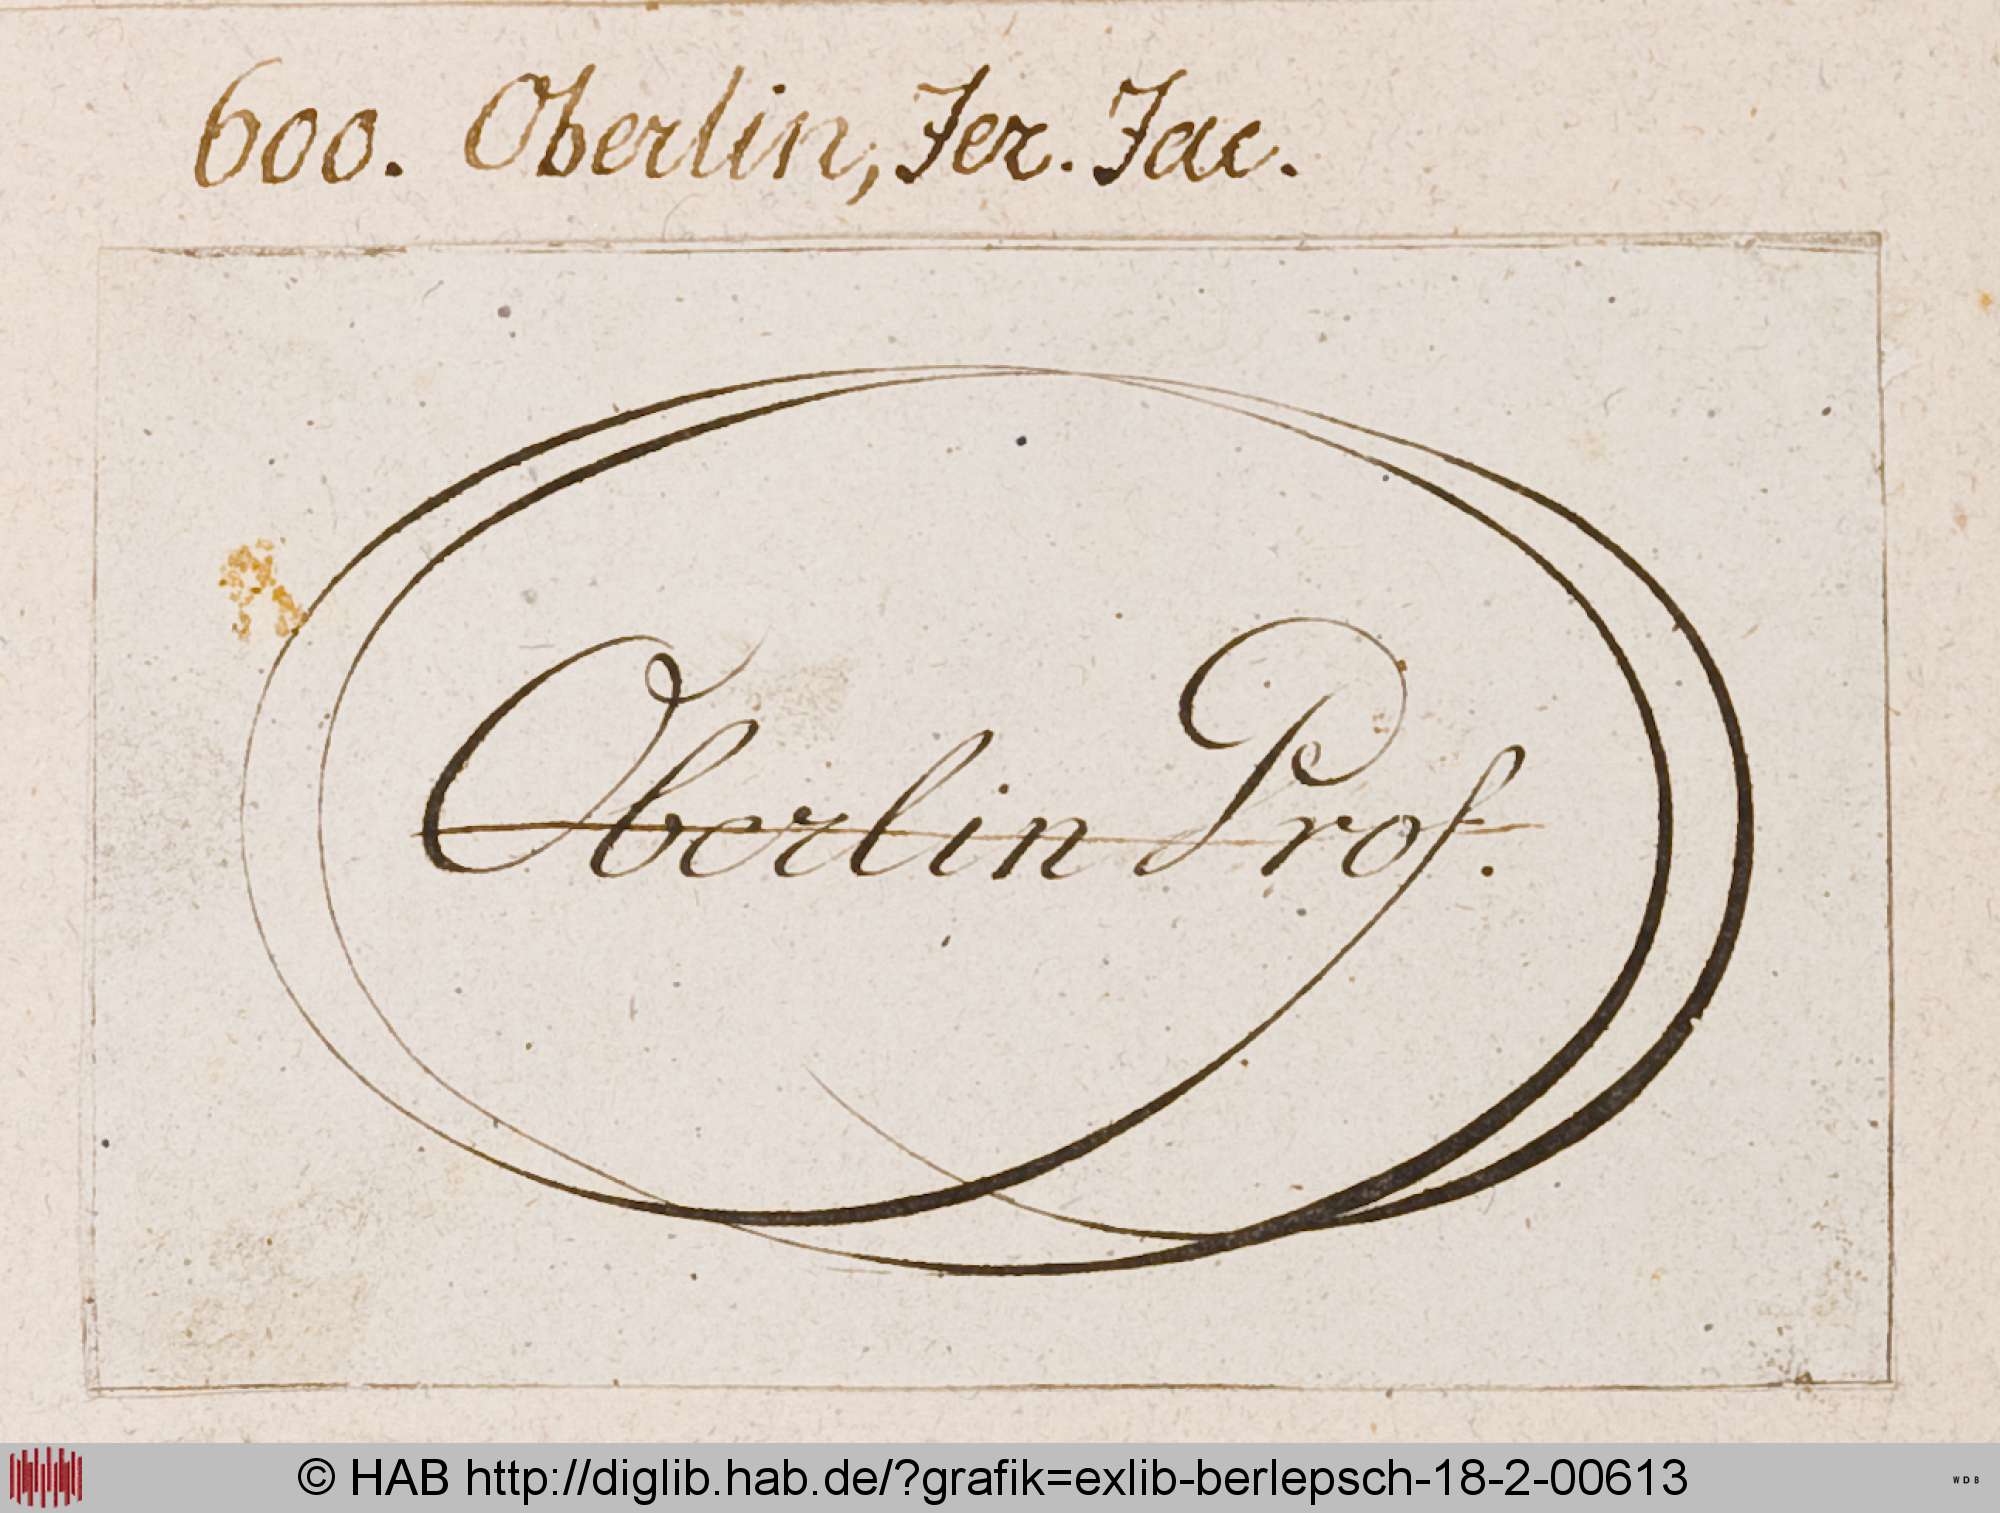 600. Oberlin, Jer. Jac.
Oberlin Prof.
© HAB http://diglib.hab.de/?grafik=exlib-berlepsch-18-2-00613
WDB